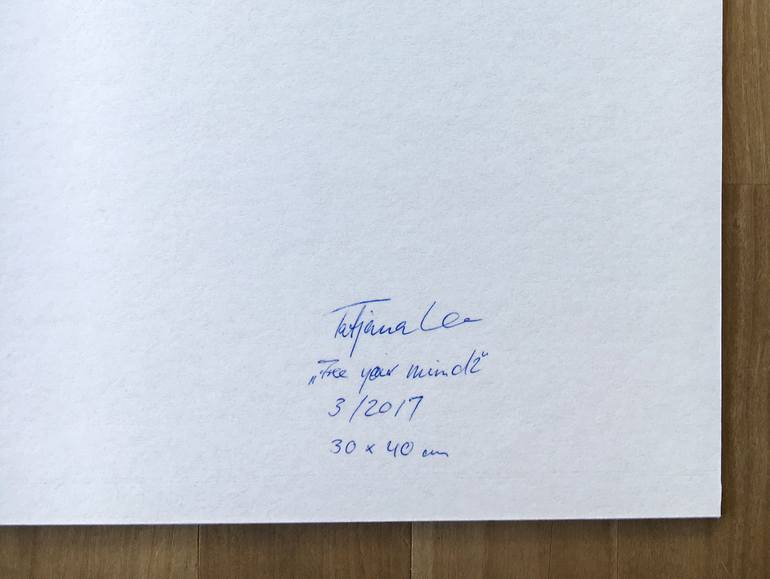 Tatjana Lee
„Free your mind2“
3/2017
30 x 40 cm